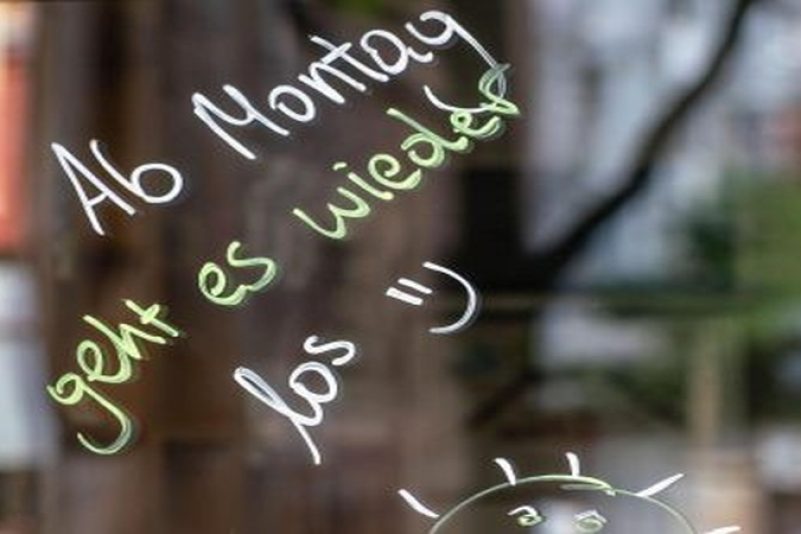 Ab Montag
geht es wieder
los ")